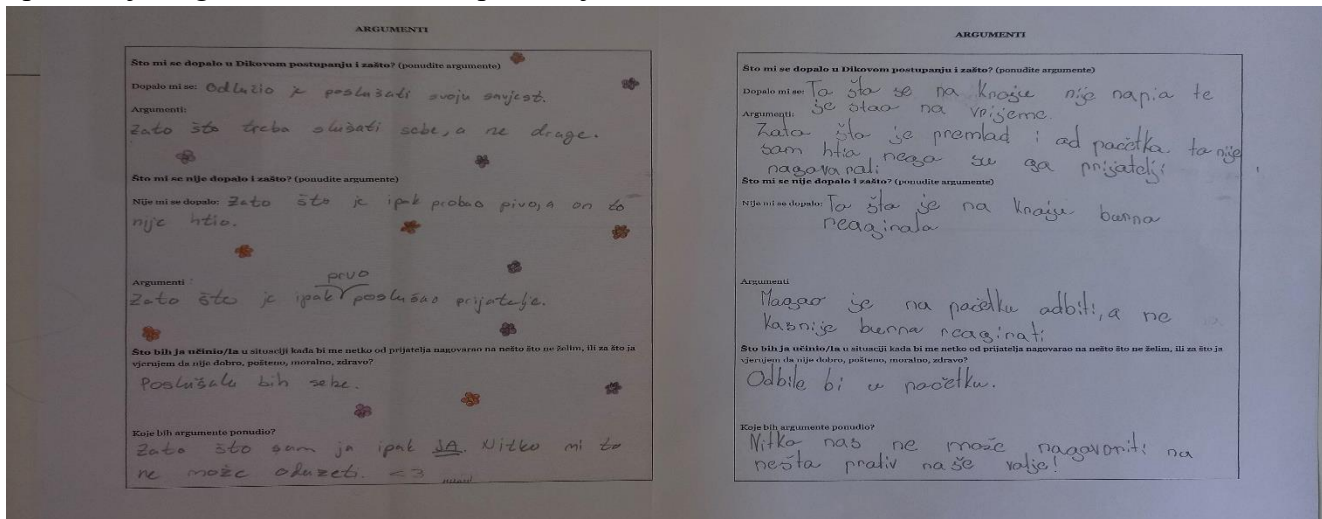 ARGUMENTI
Što mi se dopalo u Dikovom postupanju i zašto? (ponudite argumente)
Dopalo mi se: Odlučio je poslušati svoju savjest.
Argumenti:
Zato što treba slušati sebe, a ne druge.
Što mi se nije dopalo i zašto? (ponudite argumente)
Nije mi se dopalo: Zato što je ipak probao pivo, a on to
nije htio.
Argumenti
prvo
Zato što je ipak poslušao prijatelje.
Što bih ja učinio/la u situaciji kada bi me netko od prijatelja nagovarao na nešto što ne želim, ili za što ja
vjerujem da nije dobro, pošteno, moralno, zdravo?
Poslušala bih sebe.
Koje bih argumente ponudio?
Zato što sam ja ipak JA. Nitko mi to
ne može oduzeti. <3
ARGUMENTI
Što mi se dopalo u Dikovom postupanju i zašto? (ponudite argumente)
Dopalo mi se: To što se na kraju nije napio te
Argumenti: je stao na vrijeme.
Zato što je premlad i od početka to nije
sam htio nego su ga prijatelji
nagovarali
Što mi se nije dopalo i zašto? (ponudite argumente)
Nije mi se dopalo: To što je na kraju burno
reagirao
Argumenti
Mogao je na početku odbiti, a ne
kasnije burno reagirati
Što bih ja učinio/la u situaciji kada bi me netko od prijatelja nagovarao na nešto što ne želim, ili za što ja
vjerujem da nije dobro, pošteno, moralno, zdravo?
Odbila bi u početku.
Koje bih argumente ponudio?
Nitko nas ne može nagovoriti na
nešto protiv naše volje!